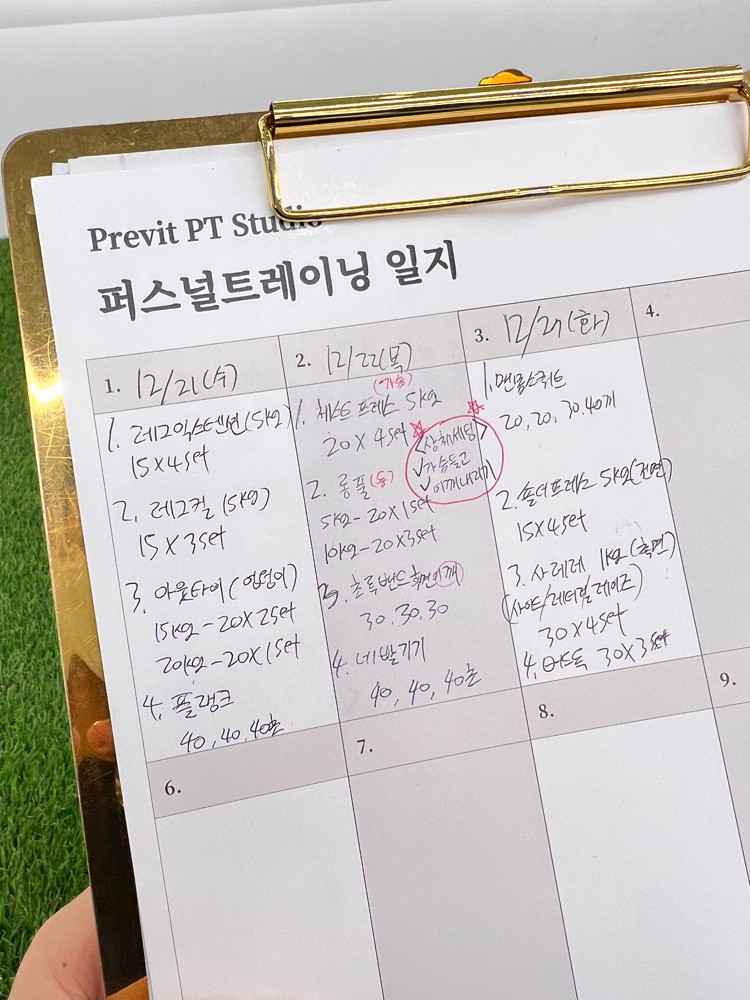 Previt PT Studio
퍼스널트레이닝 일지
1. 12/21(수)
1. 레그익스텐션(5kg)
15X4set
2. 레그컬 (5kg)
15X3set
3. 아웃타이(엉덩이)
15kg-20X2set
20kg-20X1set
4. 플랭크
40,40,40초
2. 12/22(목)
(가슴)
1. 체스트 프레스 5kg
20X4set
<상체세팅>
✓가슴들고
✓어깨내리기
2. 롱풀(등)
5kg-20X1set
10kg-20X3set
3. 초록밴드 측면어깨
30.30.30
4. 네발기기
40,40,40초
3. 12/27(화)
1. 맨몸스쿼트
20,20,30.40개
2. 숄더프레스 5kg(전면)
15X4set
3. 사레레 1kg(측면)
(사이드/레터럴레이즈)
30X4set
4. 30X3set
4.
6.
7.
8.
9.